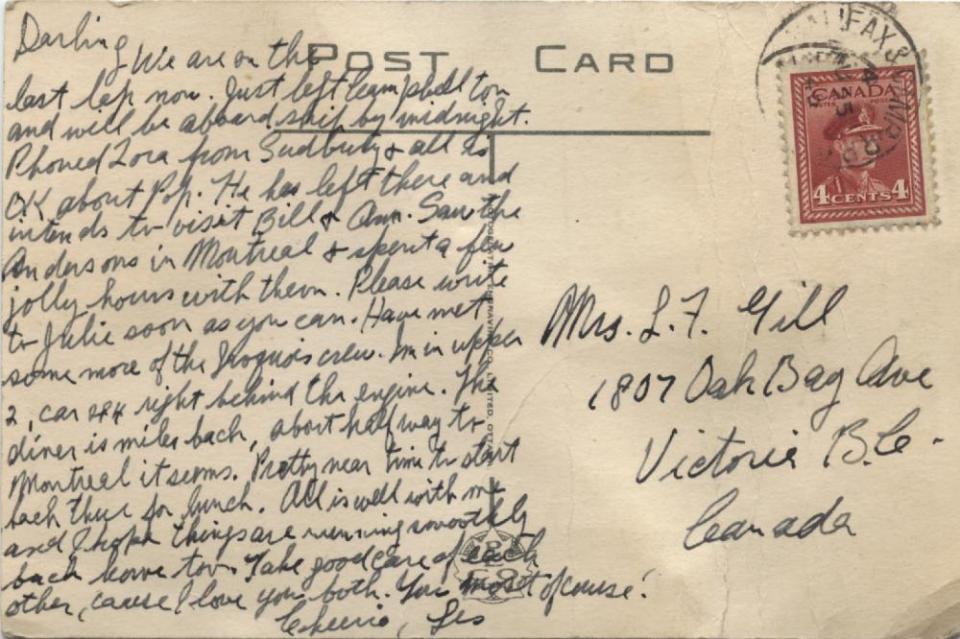 Darling, We are on the
last lap now. Just left Campbellton
and will be aboard ship by midnight.
Phoned Zora from Sudbury & all is
OK about Pop. He has left there and
intends to visit Bill & Ann. Saw the
Andersons in Montreal & spent a few
jolly hours with them. Please write
to Julie soon as you can. Have met
some more of the Iroquois crew. Im in upper
2, car right behind the engine. The
diner is miles back, about half way to
Montreal it seems. Pretty near time to start
back there for lunch. All is well with me
and I hope things are running smoothly
back home too. Take good care of each
other, cause I love you both. You most of course!
Cheerio, Les
POST CARD
HALIFAX
CANADA
4 CENTS 4
Mrs. L. F. Gill
1807 Oak Bay Ave
Victoria B.C.
Canada